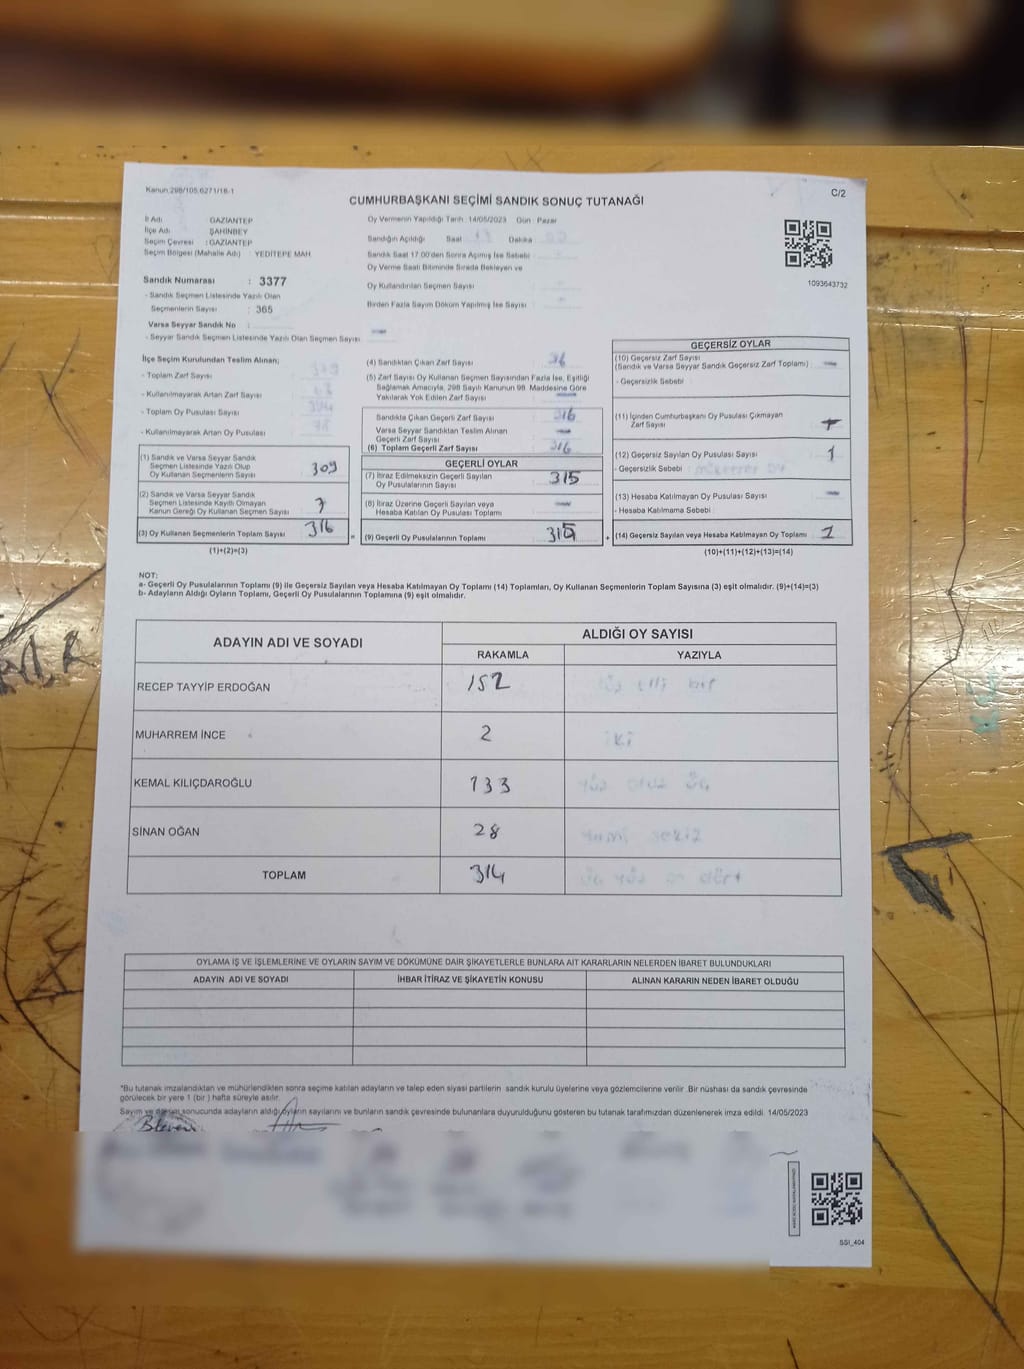 Kanun:298/105,6271/18-1
C/2
CUMHURBAŞKANI SEÇİMİ SANDIK SONUÇ TUTANAĞI
İl Adı : GAZİANTEP
İlçe Adı : ŞAHİNBEY
Seçim Çevresi : GAZİANTEP
Seçim Bölgesi (Mahalle Adı) : YEDİTEPE MAH.
Oy Vermenin Yapıldığı Tarih: 14/05/2023 Gün: Pazar
Sandığın Açıldığı Saat Dakika
Sandık Saat 17.00'den Sonra Açılmış İse Sebebi
Oy Verme Saati Bitiminde Sırada Bekleyen ve
Oy Kullandırılan Seçmen Sayısı
Birden Fazla Sayım Döküm Yapılmış İse Sayısı
1093643732
Sandık Numarası : 3377
- Sandık Seçmen Listesinde Yazılı Olan
Seçmenlerin Sayısı : 365
Varsa Seyyar Sandık No :
- Seyyar Sandık Seçmen Listesinde Yazılı Olan Seçmen Sayısı
İlçe Seçim Kurulundan Teslim Alınan;
- Toplam Zarf Sayısı
- Kullanılmayarak Artan Zarf Sayısı
- Toplam Oy Pusulası Sayısı
- Kullanılmayarak Artan Oy Pusulası
(1) Sandık ve Varsa Seyyar Sandık
Seçmen Listesinde Yazılı Olup
Oy Kullanan Seçmenlerin Sayısı 309
(2) Sandık ve Varsa Seyyar Sandık
Seçmen Listesinde Kayıtlı Olmayan
Kanun Gereği Oy Kullanan Seçmen Sayısı 7
(3) Oy Kullanan Seçmenlerin Toplam Sayısı 316
(1)+(2)=(3)
(4) Sandıktan Çıkan Zarf Sayısı
(5) Zarf Sayısı Oy Kullanan Seçmen Sayısından Fazla İse, Eşitliği
Sağlamak Amacıyla, 298 Sayılı Kanunun 98. Maddesine Göre
Yakılarak Yok Edilen Zarf Sayısı
Sandıkta Çıkan Geçerli Zarf Sayısı 316
Varsa Seyyar Sandıktan Teslim Alınan
Geçerli Zarf Sayısı
(6) Toplam Geçerli Zarf Sayısı 316
GEÇERLİ OYLAR
(7) İtiraz Edilmeksizin Geçerli Sayılan
Oy Pusulalarının Sayısı 315
(8) İtiraz Üzerine Geçerli Sayılan veya
Hesaba Katılan Oy Pusulası Toplamı
= (9) Geçerli Oy Pusulalarının Toplamı 315
GEÇERSİZ OYLAR
(10) Geçersiz Zarf Sayısı
(Sandık ve Varsa Seyyar Sandık Geçersiz Zarf Toplamı)
- Geçersizlik Sebebi
(11) İçinden Cumhurbaşkanı Oy Pusulası Çıkmayan
Zarf Sayısı
(12) Geçersiz Sayılan Oy Pusulası Sayısı 1
- Geçersizlik Sebebi
(13) Hesaba Katılmayan Oy Pusulası Sayısı
- Hesaba Katılmama Sebebi
+ (14) Geçersiz Sayılan veya Hesaba Katılmayan Oy Toplamı 1
(10)+(11)+(12)+(13)=(14)
NOT:
a- Geçerli Oy Pusulalarının Toplamı (9) ile Geçersiz Sayılan veya Hesaba Katılmayan Oy Toplamı (14) Toplamları, Oy Kullanan Seçmenlerin Toplam Sayısına (3) eşit olmalıdır. (9)+(14)=(3)
b- Adayların Aldığı Oyların Toplamı, Geçerli Oy Pusulalarının Toplamına (9) eşit olmalıdır.
ADAYIN ADI VE SOYADI ALDIĞI OY SAYISI
RAKAMLA YAZIYLA
RECEP TAYYİP ERDOĞAN 152
MUHARREM İNCE 2 iki
KEMAL KILIÇDAROĞLU 133 yüz otuz üç
SİNAN OĞAN 28 yirmi sekiz
TOPLAM 314 üç yüz on dört
OYLAMA İŞ VE İŞLEMLERİNE VE OYLARIN SAYIM VE DÖKÜMÜNE DAİR ŞİKAYETLERLE BUNLARA AİT KARARLARIN NELERDEN İBARET BULUNDUKLARI
ADAYIN ADI VE SOYADI İHBAR İTİRAZ VE ŞİKAYETİN KONUSU ALINAN KARARIN NEDEN İBARET OLDUĞU
*Bu tutanak imzalandıktan ve mühürlendikten sonra seçime katılan adayların ve talep eden siyasi partilerin sandık kurulu üyelerine veya gözlemcilerine verilir. Bir nüshası da sandık çevresinde
görülecek bir yere 1 (bir) hafta süreyle asılır.
Sayım ve döküm sonucunda adayların aldığı oyların sayılarını ve bunların sandık çevresinde bulunanlara duyurulduğunu gösteren bu tutanak tarafımızdan düzenlenerek imza edildi. 14/05/2023
SSI_404